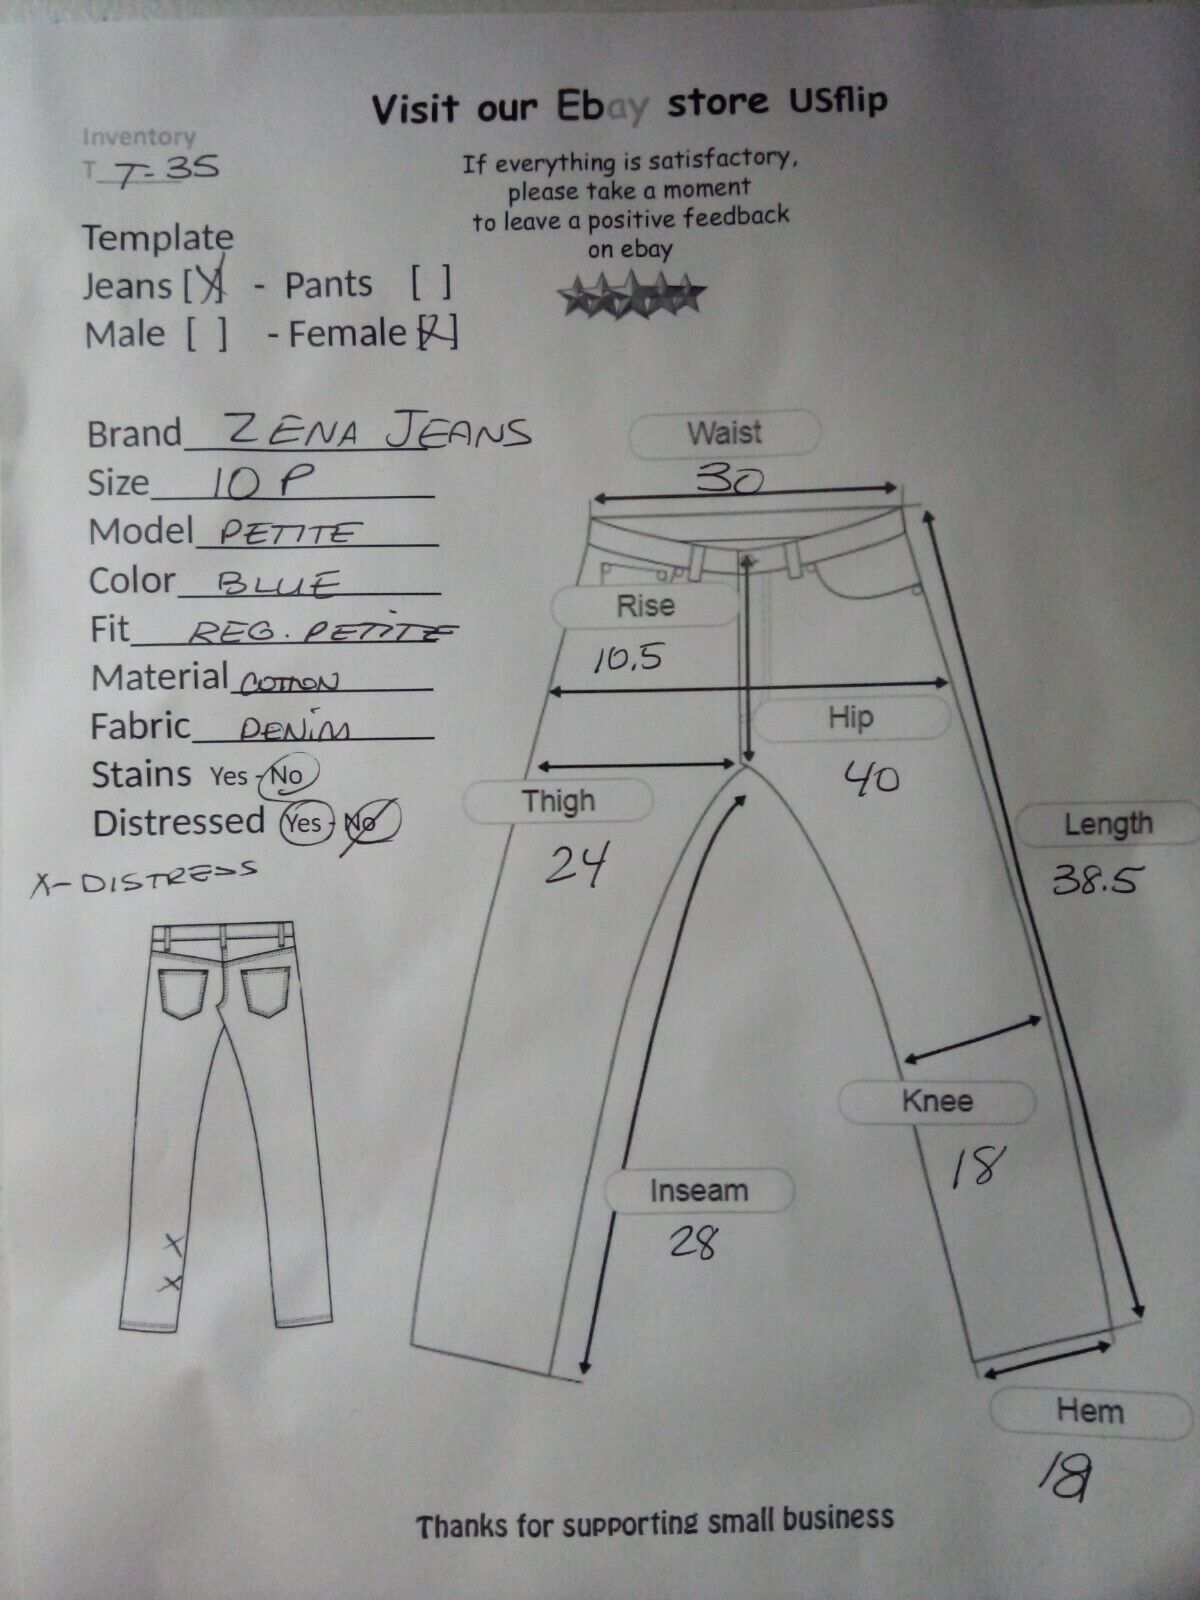 Visit our Ebay store USflip
Inventory
T T-35
If everything is satisfactory,
please take a moment
to leave a positive feedback
on ebay
Template
Jeans [X] - Pants [ ]
Male [ ] - Female [X]
Brand ZENA JEANS
Size 10 P
Model PETITE
Color BLUE
Fit REG. PETITE
Material COTTON
Fabric DENIM
Stains Yes - No
Distressed Yes - No
X- DISTRESS
X
X
Waist
30
Rise
10.5
Hip
40
Thigh
24
Length
38.5
Knee
18
Inseam
28
Hem
18
Thanks for supporting small business